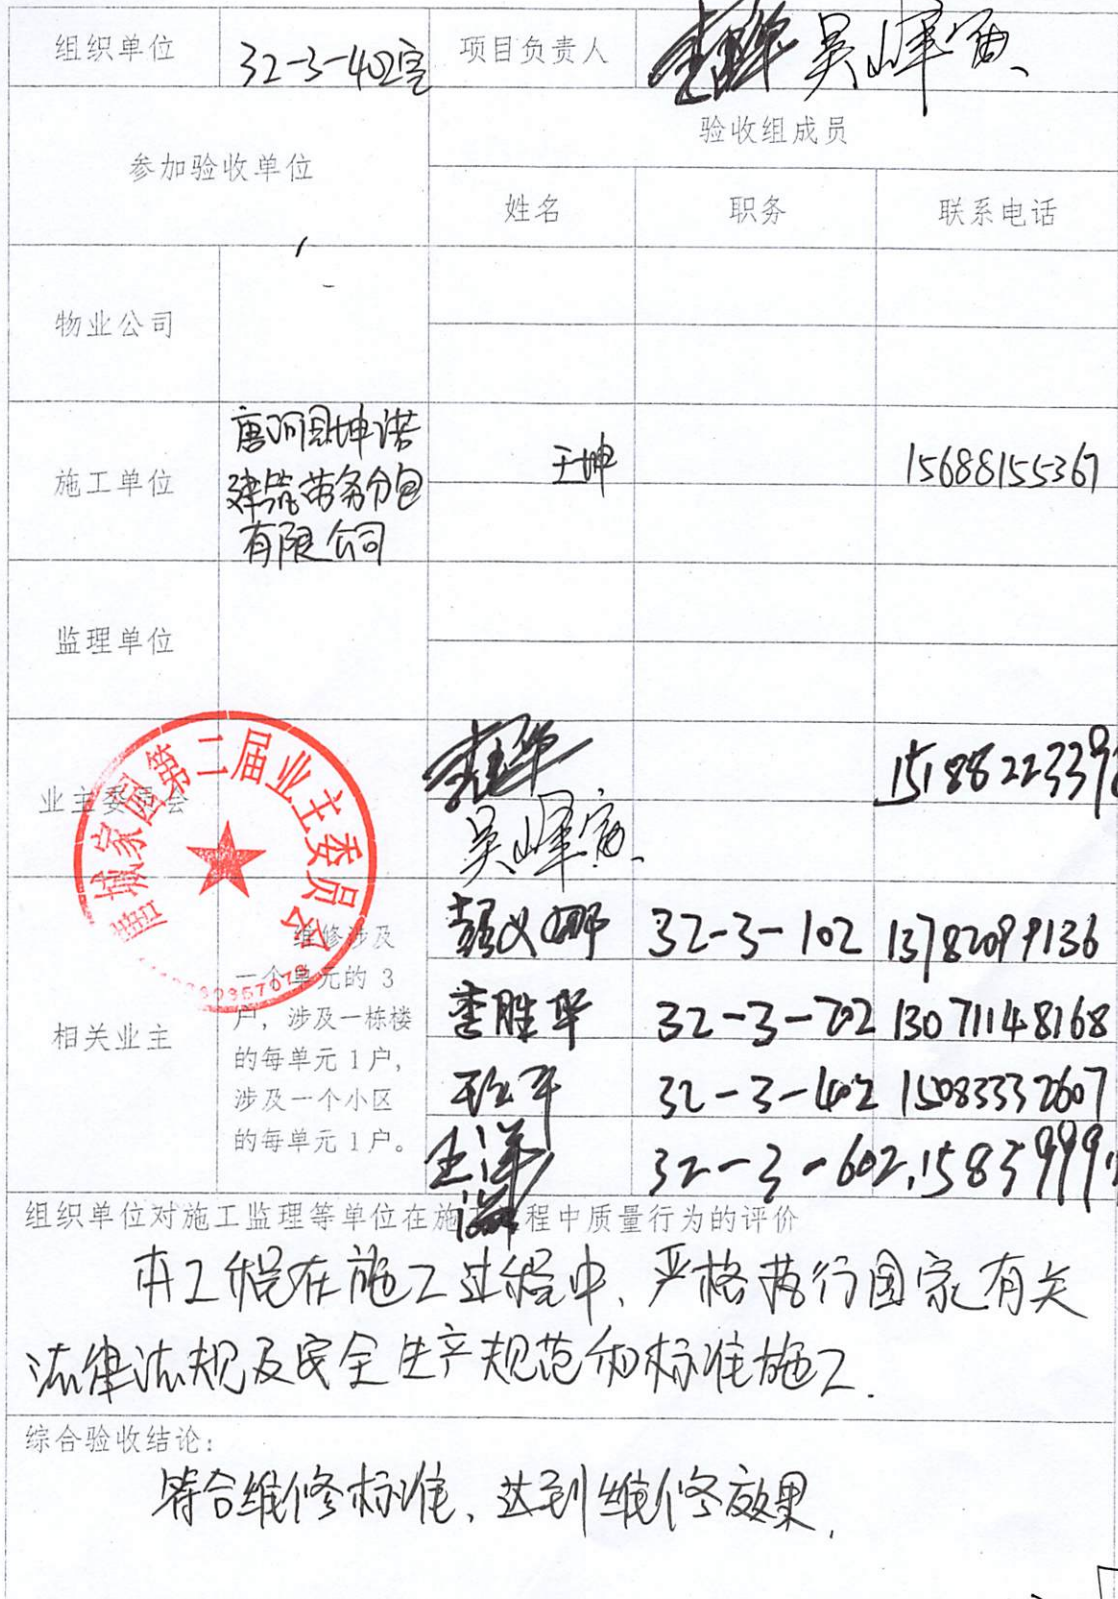 组织单位 32-3-402室 项目负责人 吴峰宙
参加验收单位 验收组成员
姓名 职务 联系电话
物业公司
施工单位 唐河县坤诺 王坤 15688155367
建筑劳务分包
有限公司
监理单位
业主委员会 1518822339
吴峰宙
第二届业主委员会
相关业主
维修涉及
一个单元的 3
户，涉及一栋楼
的每单元 1 户，
涉及一个小区
的每单元 1 户。
32-3-102 13782099136
李胜华 32-3-702 13071148168
32-3-402 15083332607
王洋 32-3-602 1585999
组织单位对施工监理等单位在施工过程中质量行为的评价
本工程在施工过程中、严格执行国家有关
法律法规及安全生产规范和标准施工.
综合验收结论:
符合维修标准、达到维修效果.